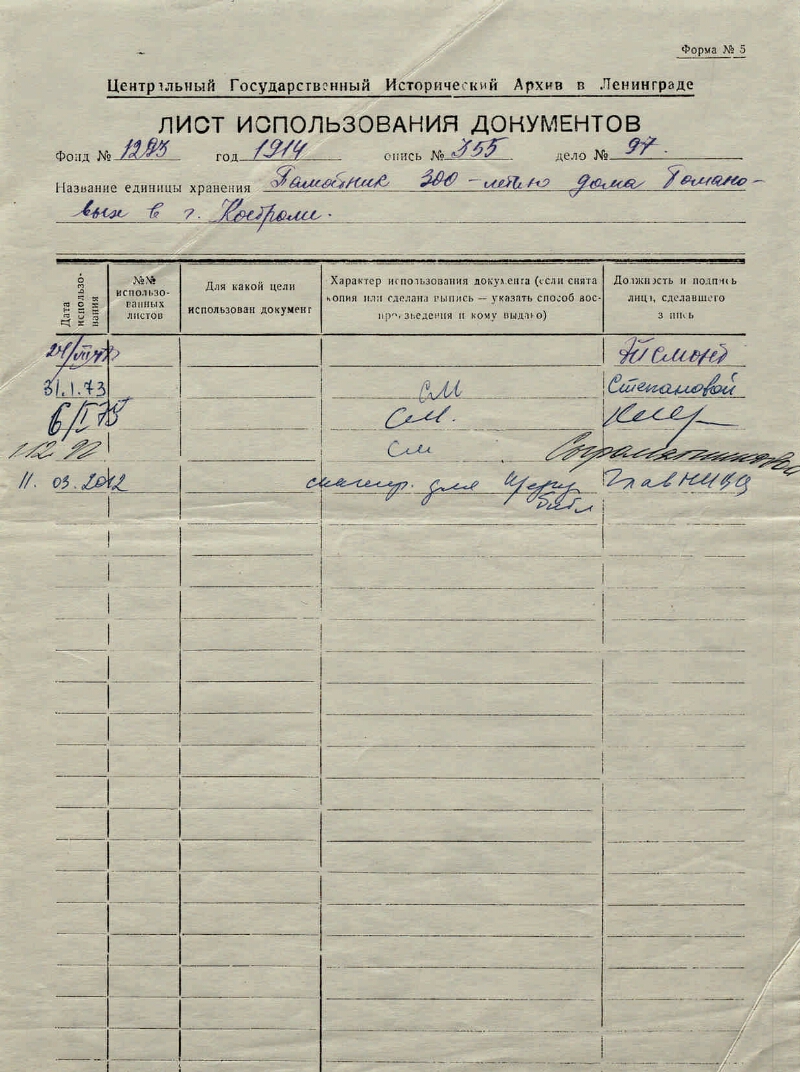 Форма № 5
Центральный Государственный Исторический Архив в Ленинграде
ЛИСТ ИСПОЛЬЗОВАНИЯ ДОКУМЕНТОВ
Фонд № 1293 год 1914 опись № 355 дело № 97
Название единицы хранения Памятник 300-летию дома Романо-
вых в г. Костроме.
Дата использования
№№ использо-
ванных
листов
Для какой цели
использован документ
Характер использования документа (если снята
копия или сделана выпись — указать способ вос-
произведения и кому выдано)
Должность и подпись
лица, сделавшего
запись
31.1.73 СМ Степановой
см.
см
11. 03. 2012 для